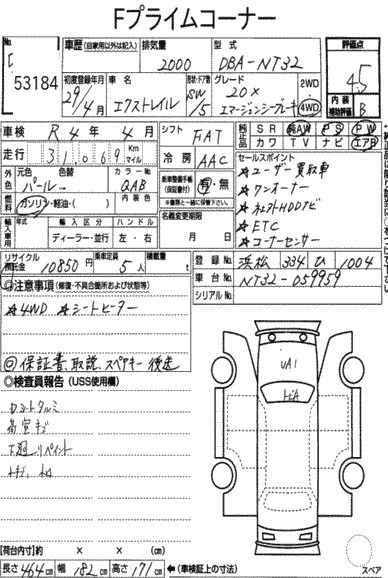 Fプライムコーナー
No.
53184
車歴 (自家用以外は記入)
排気量
2000
型式
DBA-NT32
評価点
4.5
内装補助評価
B
初度登録年月
29/4月
車名
エクストレイル
形状・ドア数
SW/5
グレード
20X
エマージェンシーブレーキ
2WD
4WD
車検
R4年4月
シフト
FAT
純正品
SR
AW
PS
PW
カワ
TV
ナビ
エアB
走行
31,069
Km
マイル
冷房
AAC
セールスポイント
★ユーザー買取車
★ワンオーナー
★ETC
★コーナーセンサー
外装
元色
色替
パール
カラーNo.
QAB
新車整備手帳
(保証書付)
有・無
燃料
ガソリン・軽油・( )
内装色
名義変更期限
月 日
輸入車用
輸入区分
ハンドル
ディーラー・並行
左・右
リサイクル預託金
10850円
乗車定員
5人
積載量
t
登録No.
浜松 334 ひ 1004
車台No.
NT32-059959
シリアルNo.
◎注意事項 (修復・不具合箇所および状態等)
★4WD ★シートヒーター
◎保証書、取説、スペアキー後送
◎検査員報告 (USS使用欄)
UA1
下廻リペイント
【荷台内寸】 約 × × (cm)
長さ 464cm 幅 182cm 高さ 171cm
←(車検証上の寸法)
スペア